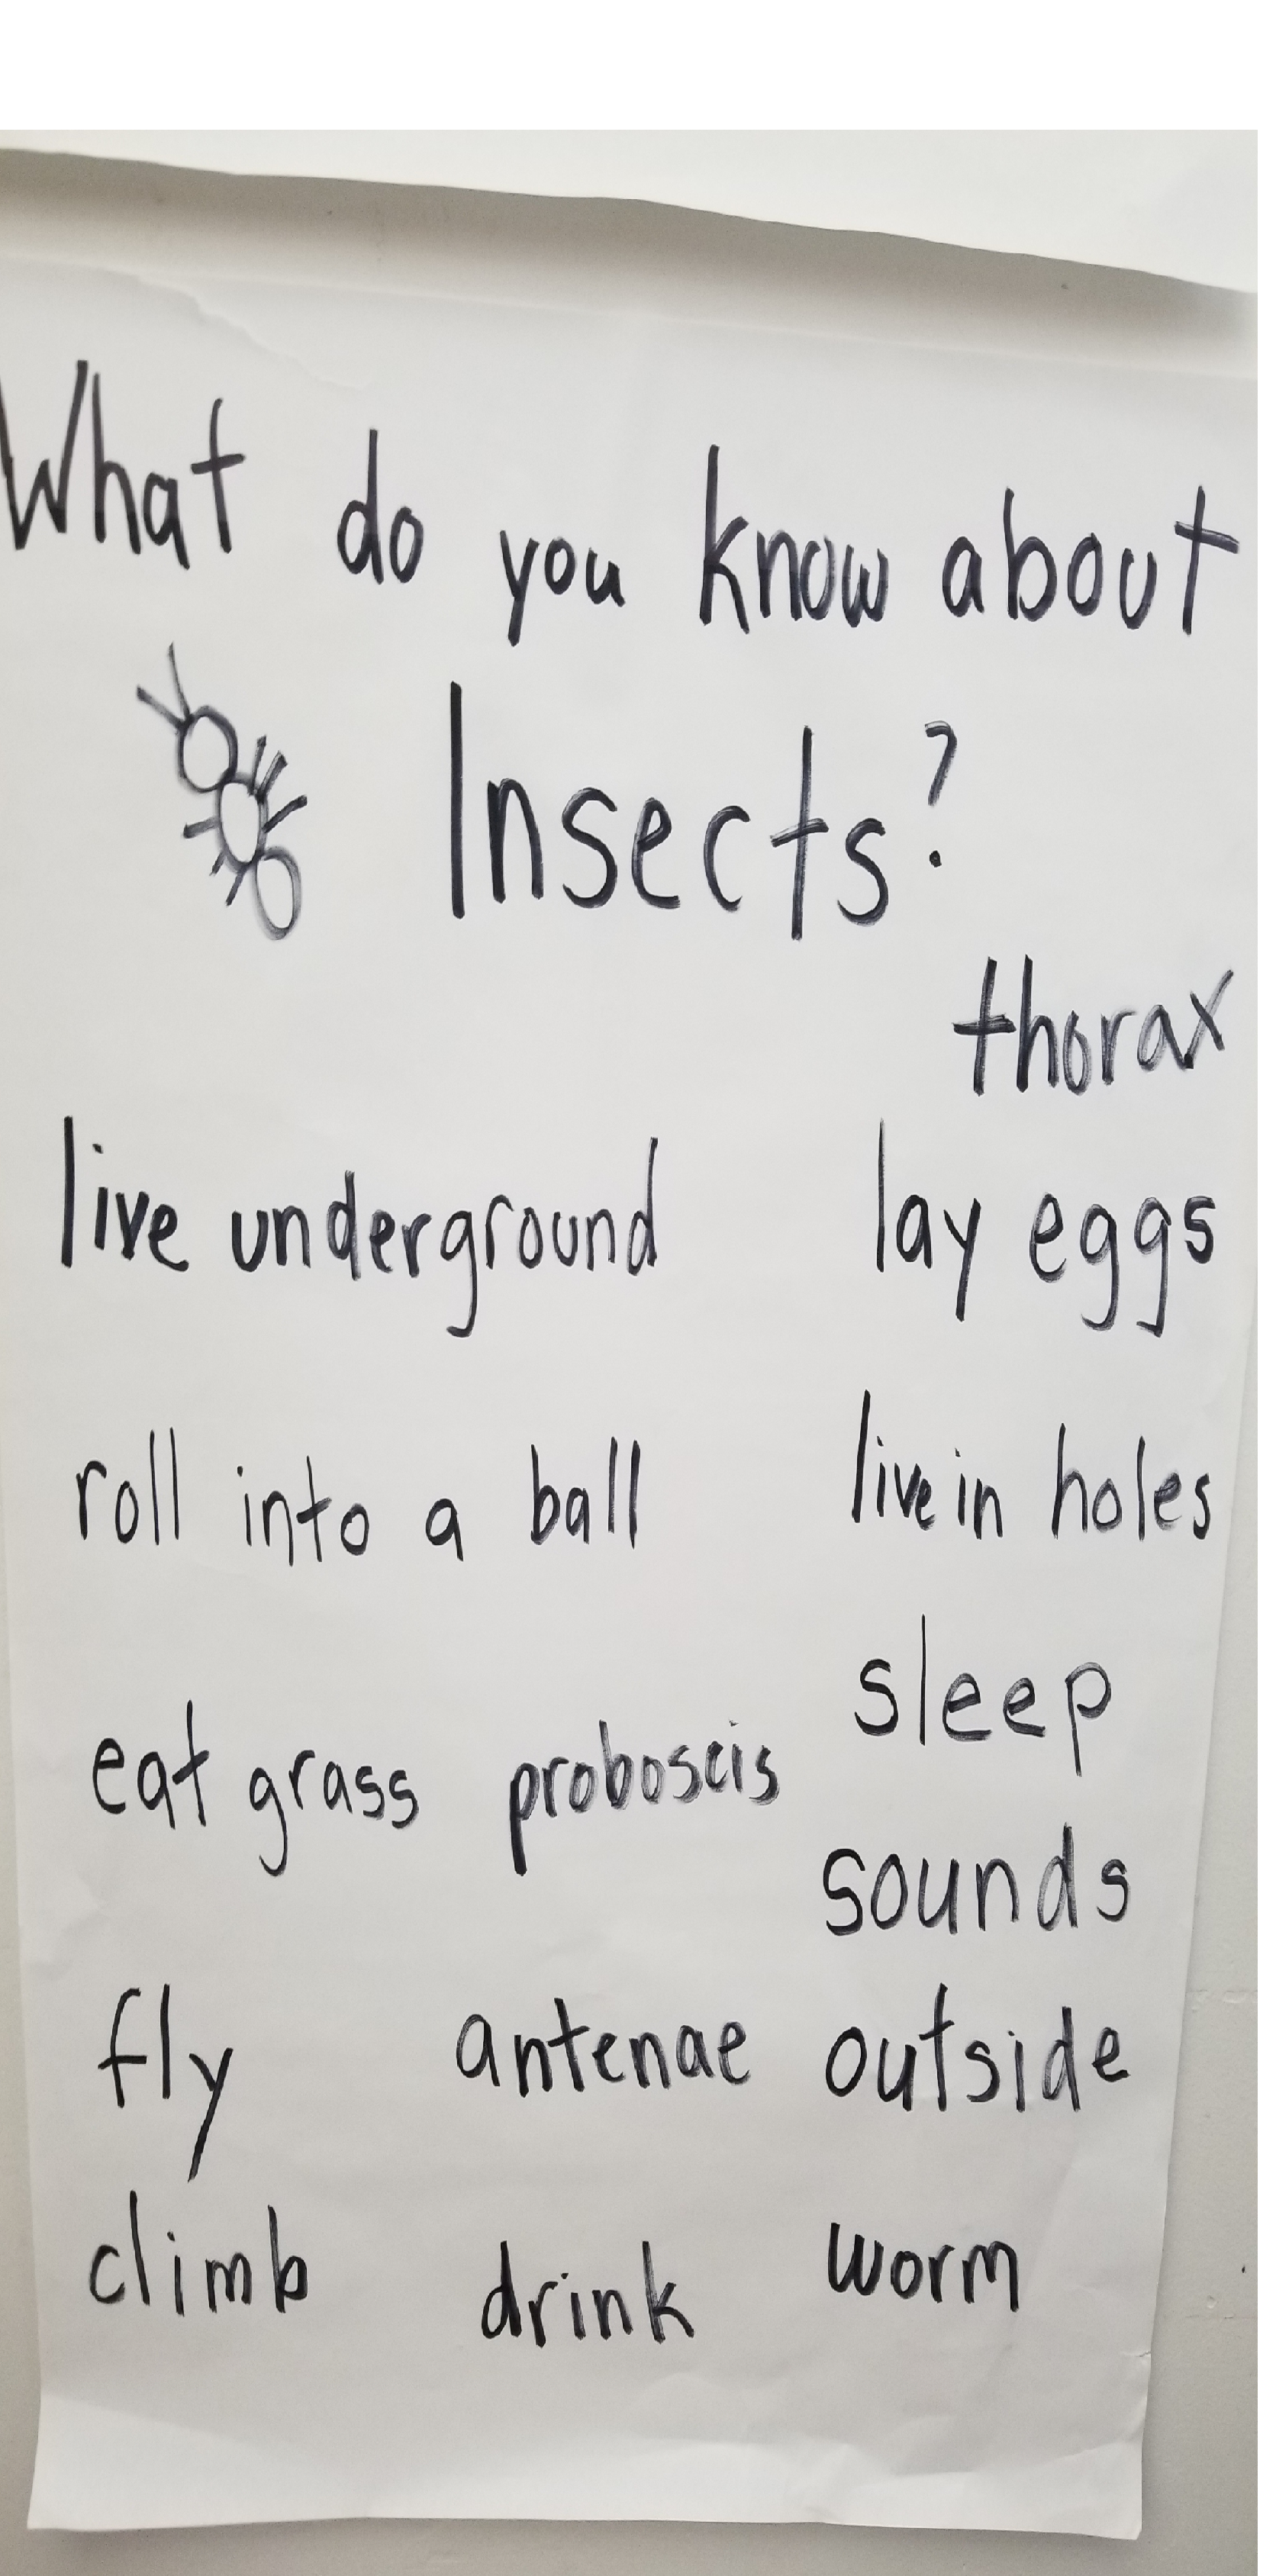 What do you know about
Insects?
thorax
live underground lay eggs
roll into a ball live in holes
sleep
eat grass proboscis
sounds
fly antenae outside
climb drink worm